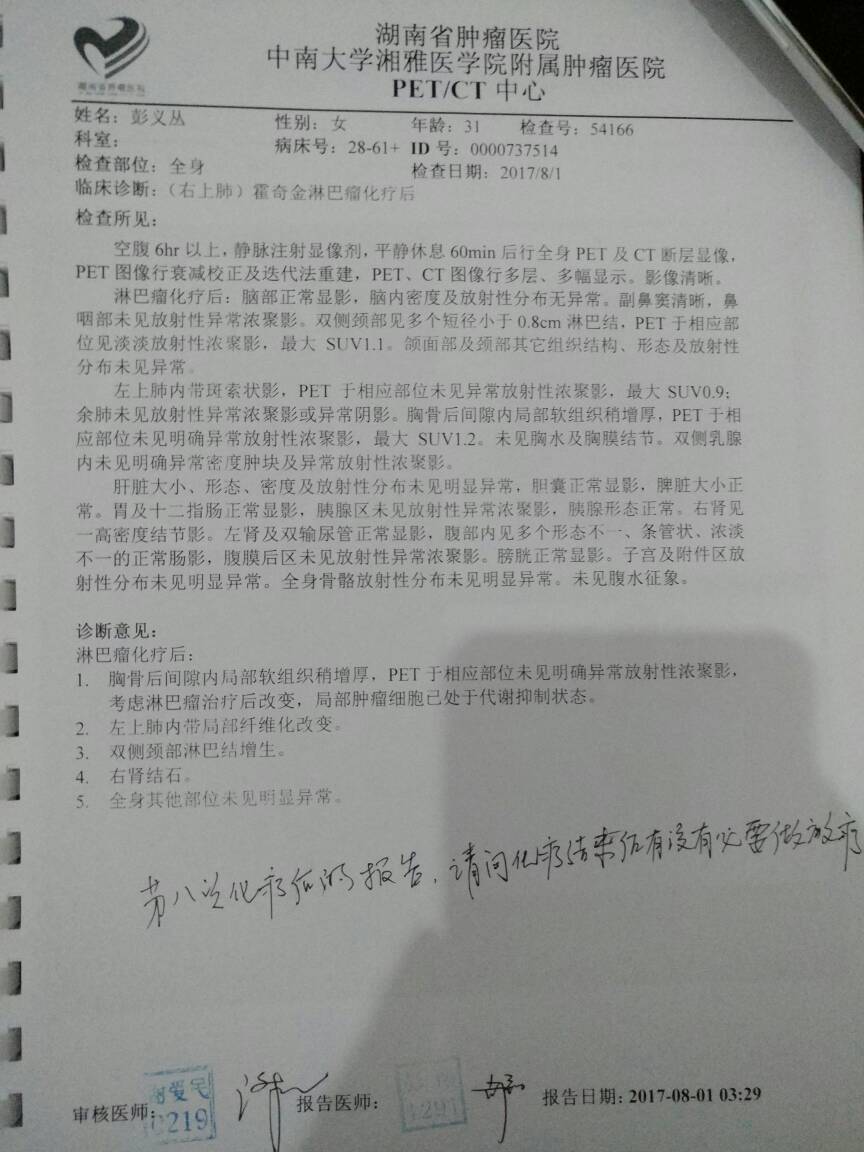 湖南省肿瘤医院
湖南省肿瘤医院
中南大学湘雅医学院附属肿瘤医院
PET/CT 中心
姓名：彭义丛 性别：女 年龄：31 检查号：54166
科室： 病床号：28-61+ ID 号：0000737514
检查部位：全身 检查日期：2017/8/1
临床诊断：（右上肺）霍奇金淋巴瘤化疗后
检查所见：
空腹 6hr 以上，静脉注射显像剂，平静休息 60min 后行全身 PET 及 CT 断层显像，
PET 图像行衰减校正及迭代法重建，PET、CT 图像行多层、多幅显示。影像清晰。
淋巴瘤化疗后：脑部正常显影，脑内密度及放射性分布无异常。副鼻窦清晰，鼻
咽部未见放射性异常浓聚影。双侧颈部见多个短径小于 0.8cm 淋巴结，PET 于相应部
位见淡淡放射性浓聚影，最大 SUV1.1。颌面部及颈部其它组织结构、形态及放射性
分布未见异常。
左上肺内带斑索状影，PET 于相应部位未见异常放射性浓聚影，最大 SUV0.9；
余肺未见放射性异常浓聚影或异常阴影。胸骨后间隙内局部软组织稍增厚，PET 于相
应部位未见明确异常放射性浓聚影，最大 SUV1.2。未见胸水及胸膜结节。双侧乳腺
内未见明确异常密度肿块及异常放射性浓聚影。
肝脏大小、形态、密度及放射性分布未见明显异常，胆囊正常显影，脾脏大小正
常。胃及十二指肠正常显影，胰腺区未见放射性异常浓聚影，胰腺形态正常。右肾见
一高密度结节影。左肾及双输尿管正常显影，腹部内见多个形态不一、条管状、浓淡
不一的正常肠影，腹膜后区未见放射性异常浓聚影。膀胱正常显影。子宫及附件区放
射性分布未见明显异常。全身骨骼放射性分布未见明显异常。未见腹水征象。
诊断意见：
淋巴瘤化疗后：
1. 胸骨后间隙内局部软组织稍增厚，PET 于相应部位未见明确异常放射性浓聚影，
考虑淋巴瘤治疗后改变，局部肿瘤细胞己处于代谢抑制状态。
2. 左上肺内带局部纤维化改变。
3. 双侧颈部淋巴结增生。
4. 右肾结石。
5. 全身其他部位未见明显异常。
第八次化疗后的报告，请问化疗结束后有没有必要做放疗
审核医师： 爱民 0219 报告医师： 1291 报告日期：2017-08-01 03:29